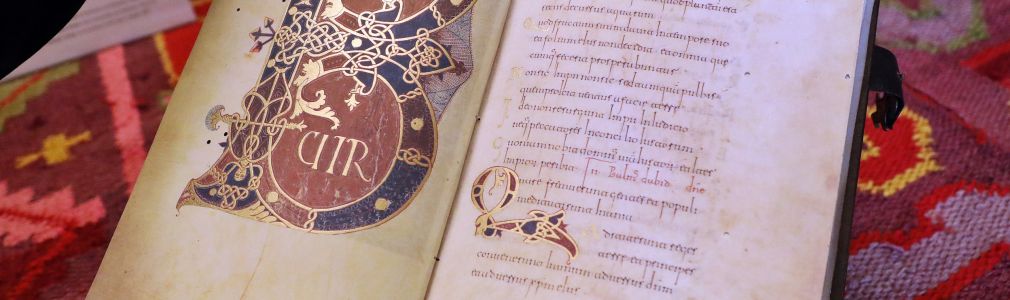 UIR
secus decursus aquarum
Quod fructum suum dabit in tempore suo
et folium eius non decidet et omnia que
cumq fecerit prosperabuntur
Non sic impii non sic sed tamquam pulbis
quem proicit uentus a facie terre
Ideo non resurgunt impii in iudicio
neq peccatores in consilio iustorum
Quoniam nobit dmns uiam iustorum et iter
impiorum peribit
Quare fremuerunt gentes et populi
meditati sunt inania
Adstiterunt reges
terre et principes
conuenerunt in unum aduersus dnm
et aduersus xpm eius